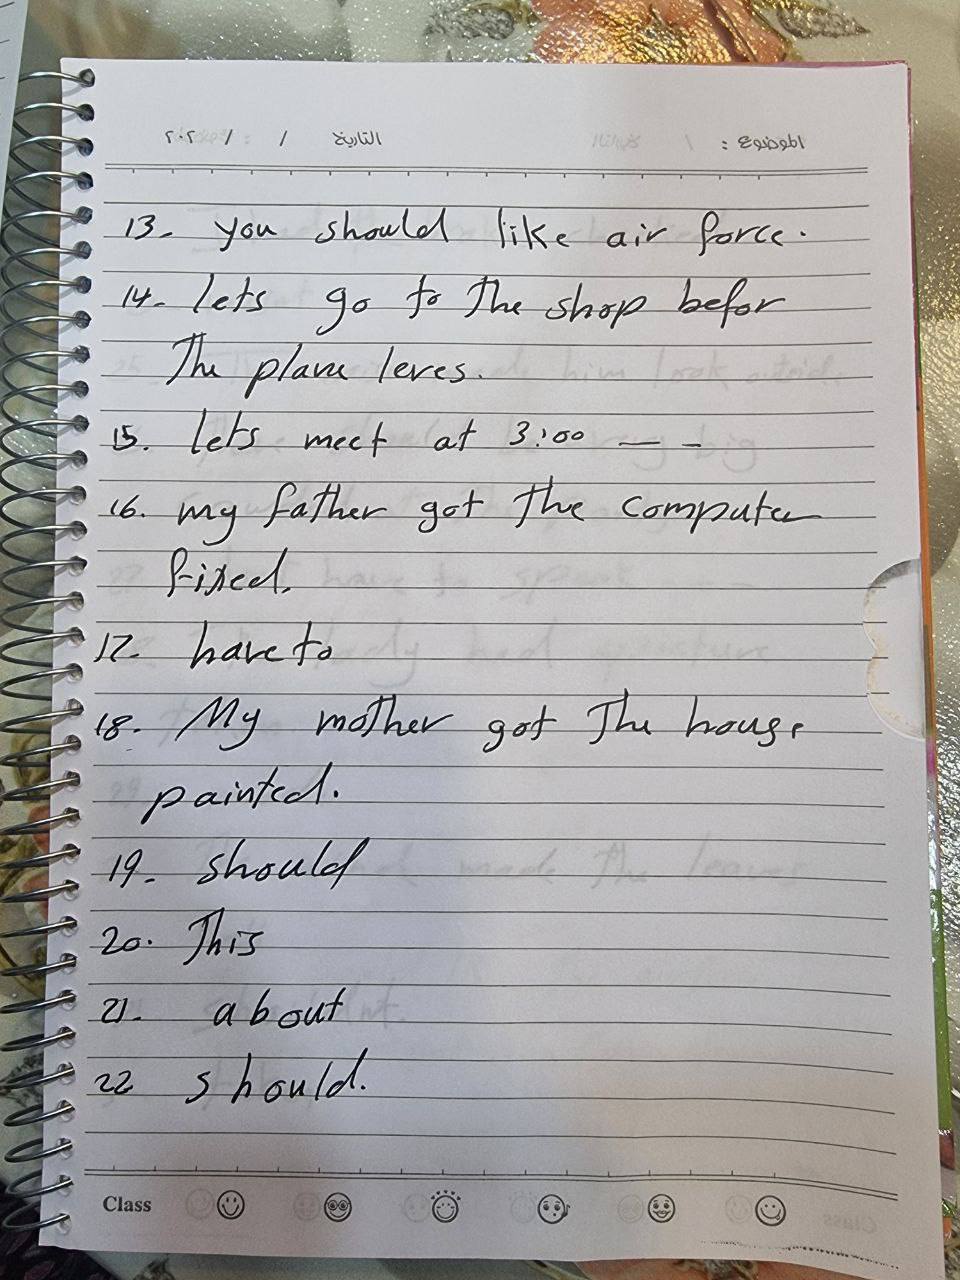 الموضوع : التاريخ / / ٢٠٢
13- you should like air force.
14- lets go to The shop befor
The plane leves.
15. lets meet at 3:00 — -
16. my father got The computer
fixed.
17- have to
18. My mother got The house
painted.
19- should
20. This
21- about
22 should.
Class